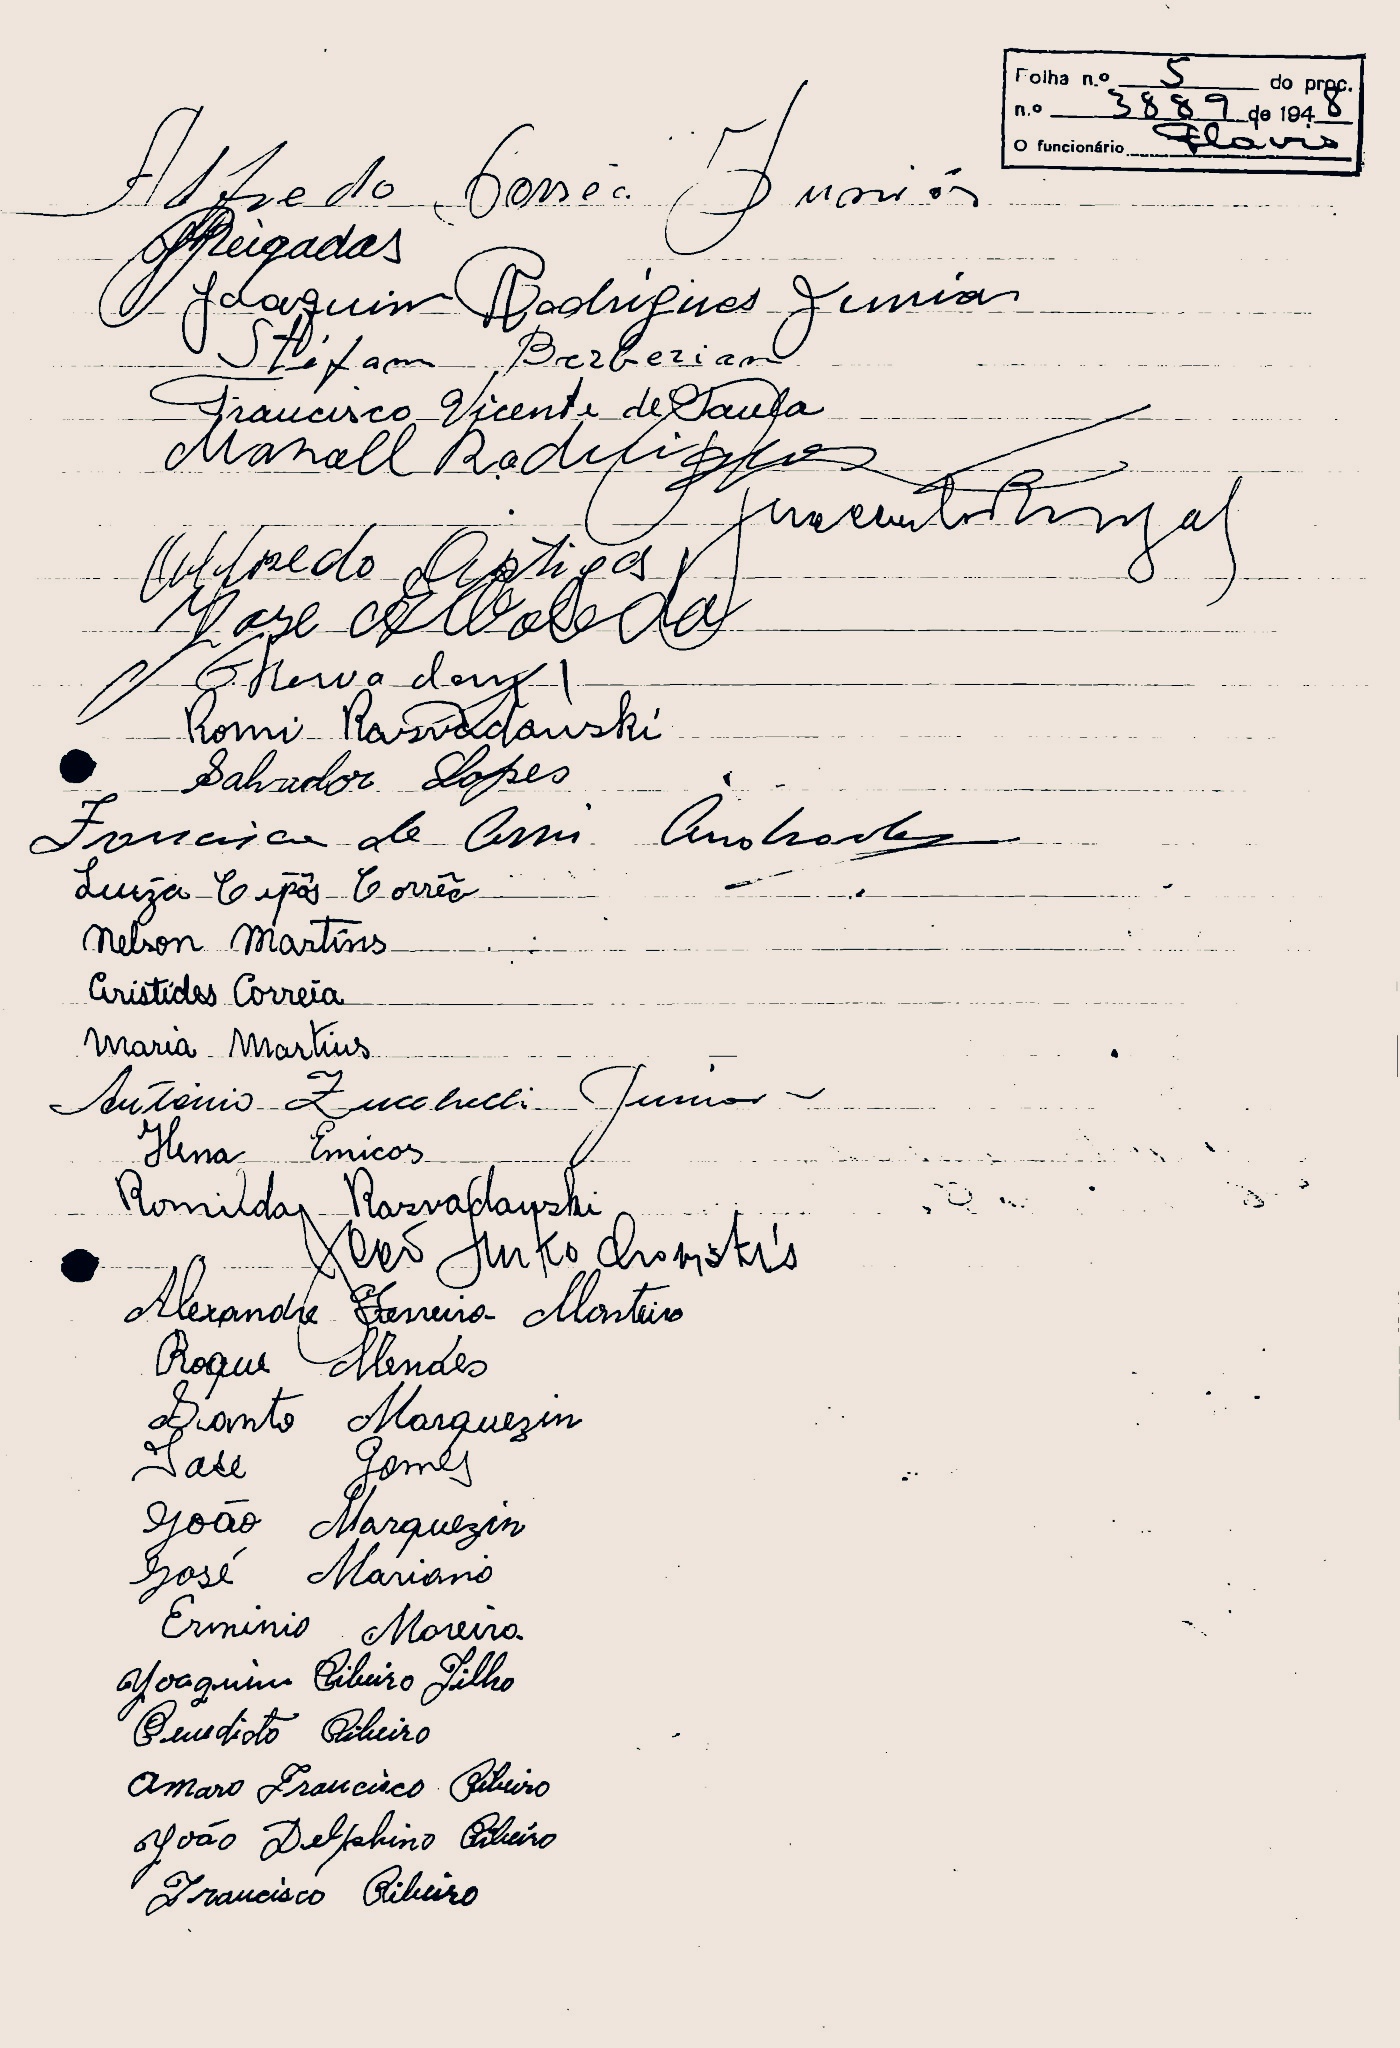 Folha n.º 5 do proc.
n.º 3889 de 1948
O funcionário Flavio
Alfredo Corrêa Junior
Joaquim Rodrigues Junior
Stéfam Berberian
Francisco Vicente de Paula
Manoell Rodrigues
Alfredo Artigas
José
Romi Rasvadauski
Salvador Lopes
Francisco de Andrade
Luiza Cepós Corrêa
Nelson Martins
Aristides Correia
Maria Martins
Antônio Zucchelli Junior
Ilena Emicos
Romilda Rasvadauski
Alexandre Ferreira Monteiro
Roque Mendes
Santo Marquezin
José Gomes
João Marquezin
José Mariano
Erminio Moreira
Joaquim Ribeiro Filho
Benedicto Ribeiro
Amaro Francisco Ribeiro
João Delphino Ribeiro
Francisco Ribeiro